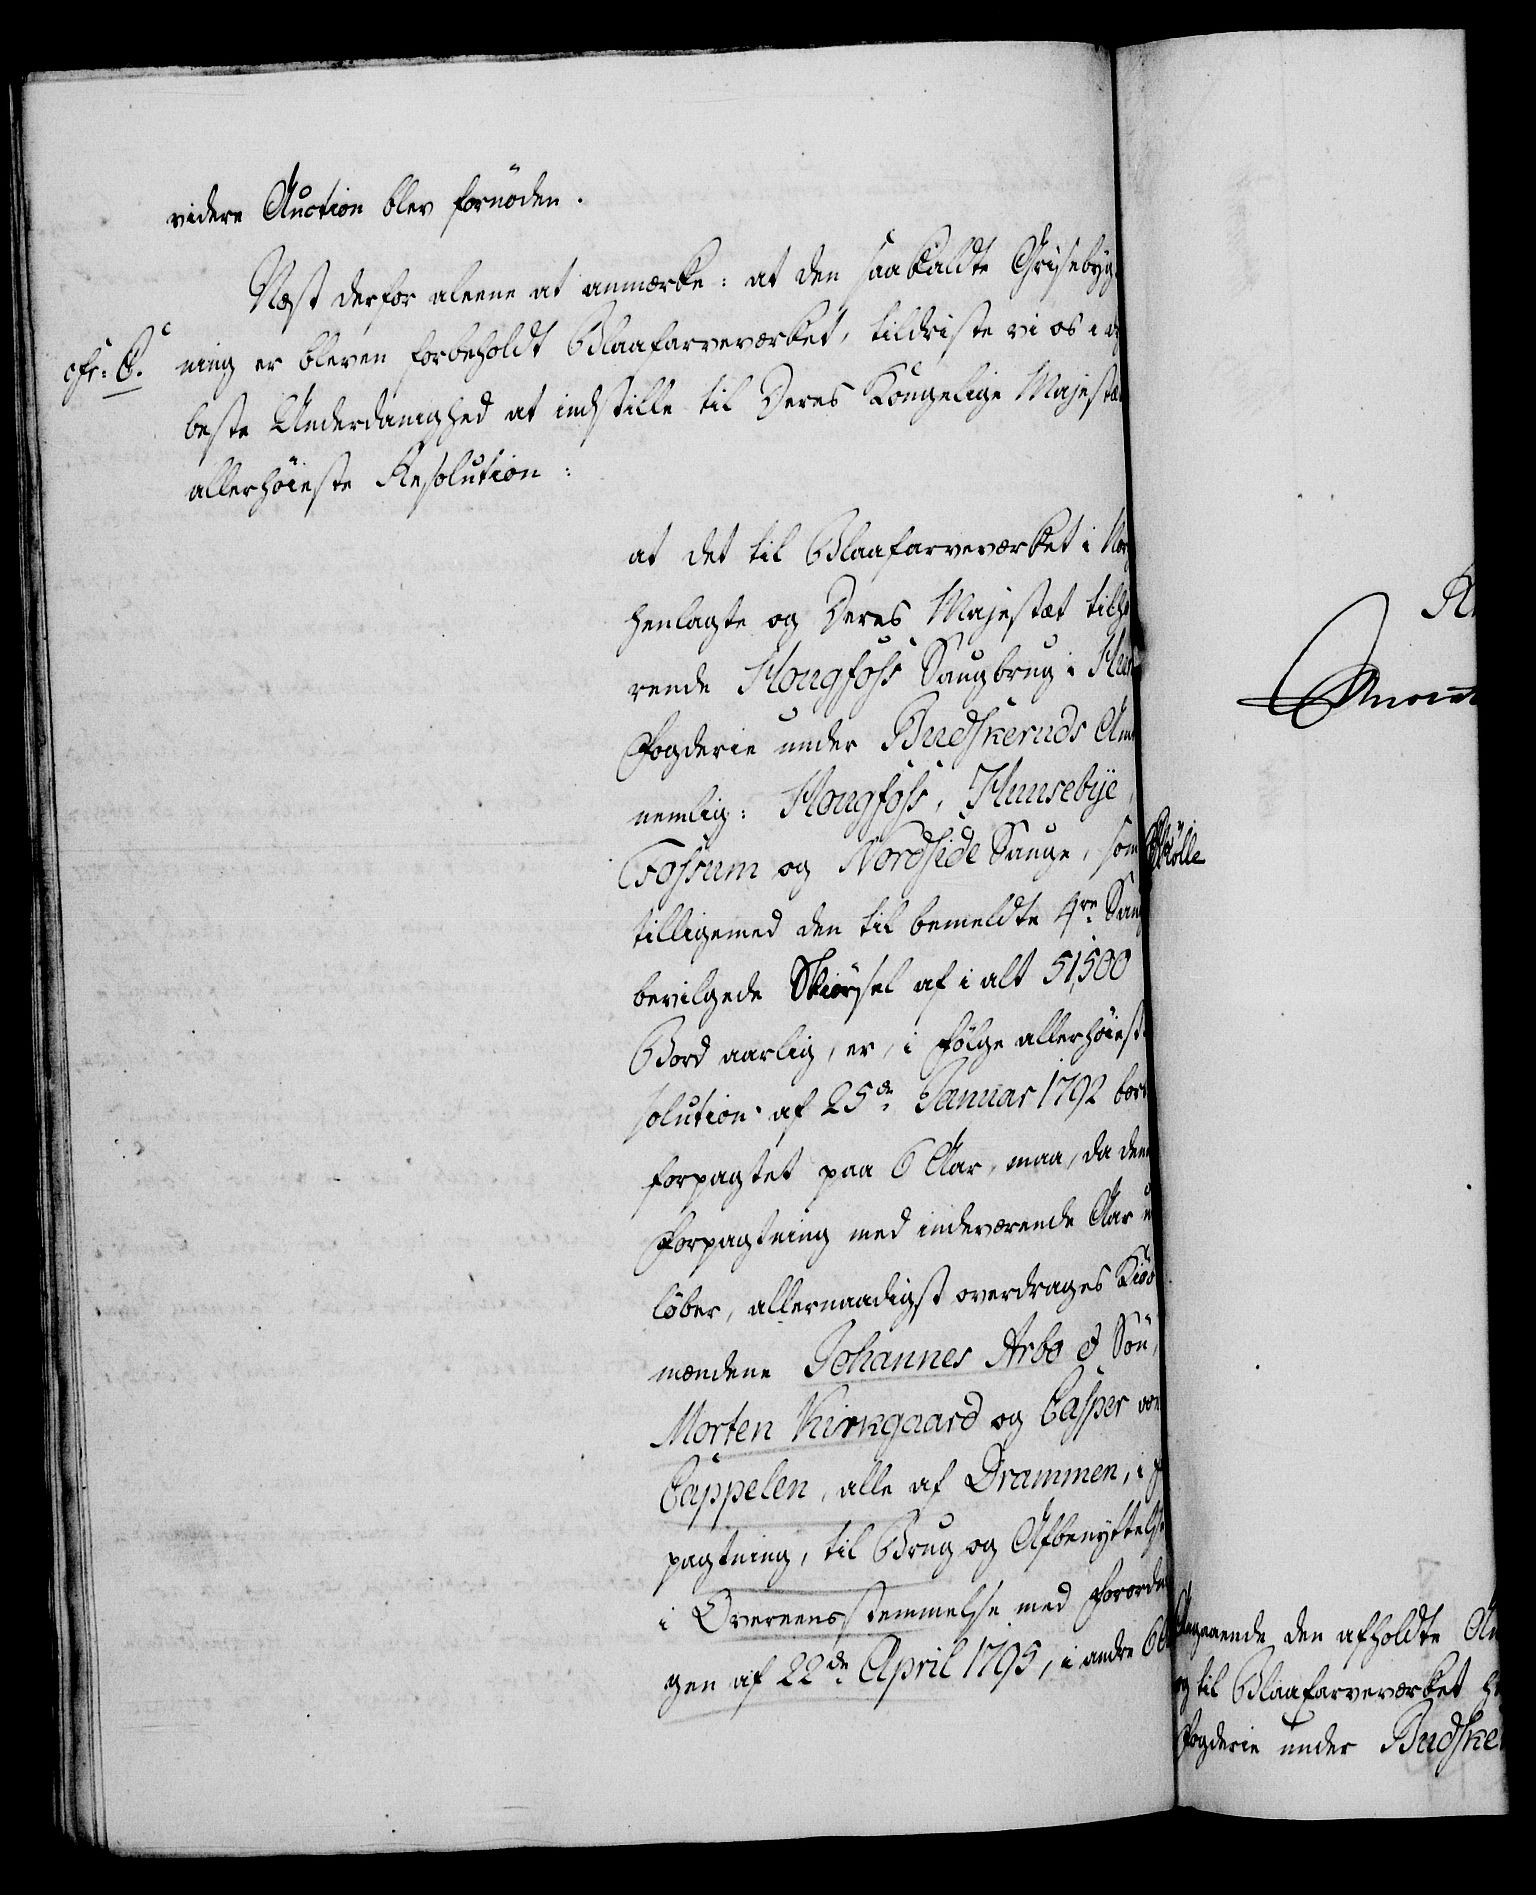 videre Auction blev fornöden.
Næst derfor aleene at anmærke: at den saakaldte Grisebyg
cfr: C. ning er bleven forbeholdt Blaafarveværket, tildriste vi os i
beste Underdanighed at indstille til Deres Kongelige Majestæ
allerhöieste Resolution:
at det til Blaafarveværket i Nor
henlagte og Deres Majestæt tilhö
rende Hougfoss Saugbrug i
Fogderie under Budskeruds Am
nemlig: Hougfoss, Hunsebye,
Fossum og Nordside Sauge, som
tilligemed den til bemeldte 4re Sau
bevilgede Skiørsel af i alt 51,500
Bord aarlig, er, i Følge allerhöiest
solution af 25de Januar 1792 bort
forpagtet paa 6 Aar, maa, da den
Forpagtning med indeværende Aar u
löber, allernaadigst overdrages Kiöb
mændene Johannes Arbo & Sön,
Morten Kirkgaard og Casper von
Cappelen, alle af Drammen, i F
pagtning, til Brug og Afbenyttelse
i Overeensstemmelse med Forordni
gen af 22de April 1795, i andre 6
Mölle
Angaaende den afholdte Au
og til Blaafarveværket he
Fogderie under Budske